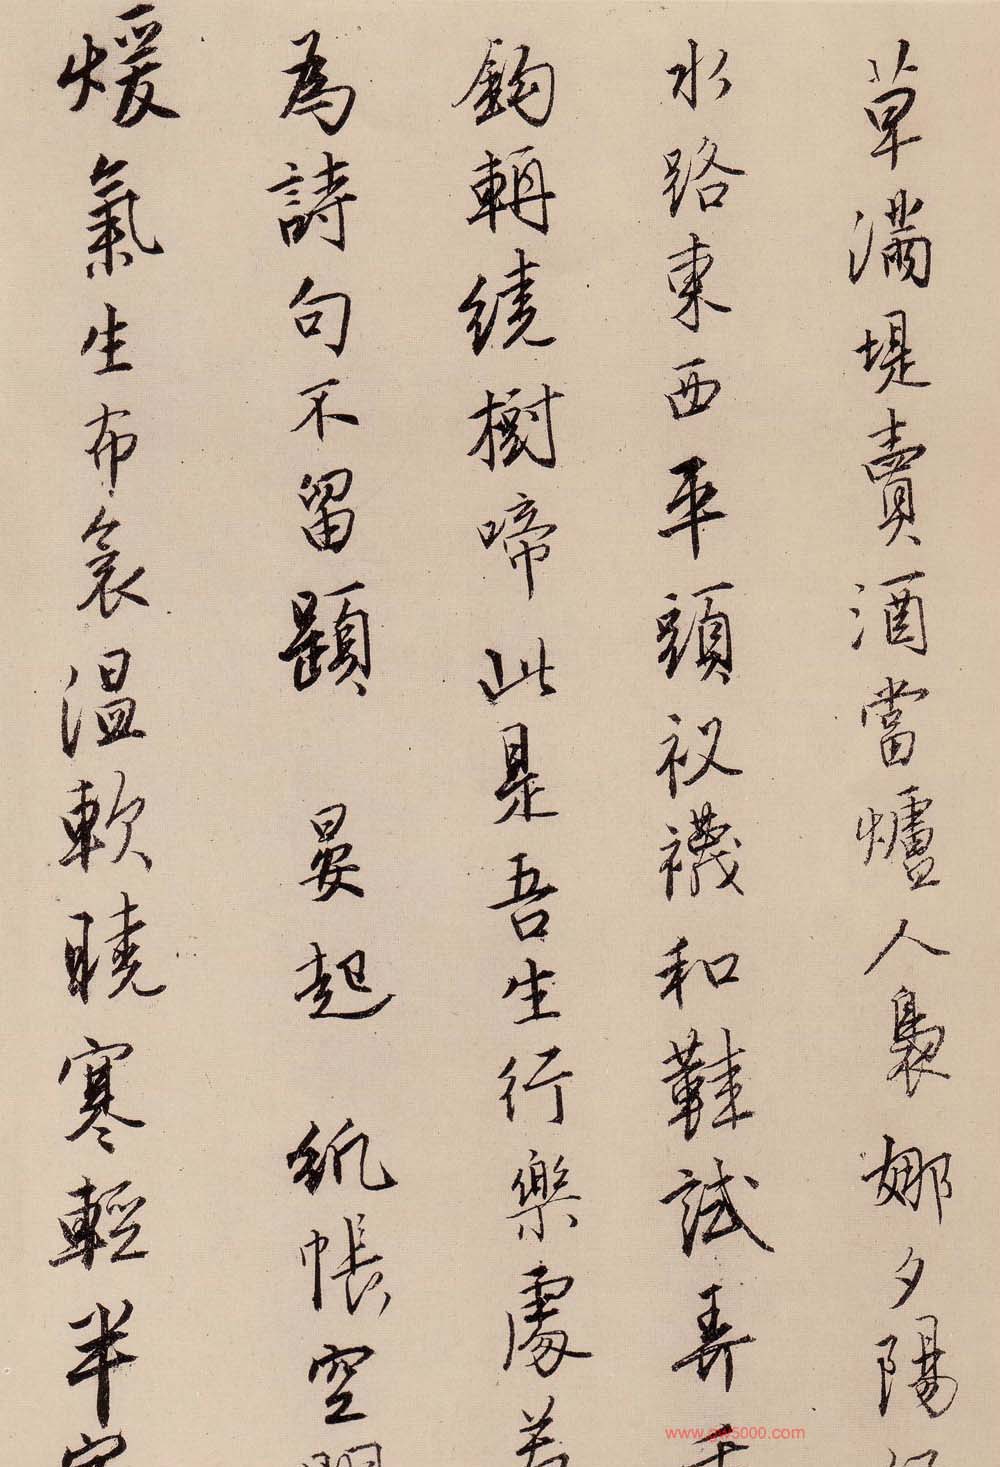 草滿堤賣酒當爐人裊娜夕陽
水路東西平頭衩襪和鞋試弄
鉤輈繞樹啼此是吾生行樂處若
為詩句不留題 晏起 紙帳空
煖氣生布衾溫軟曉寒輕半
www.gw5000.com